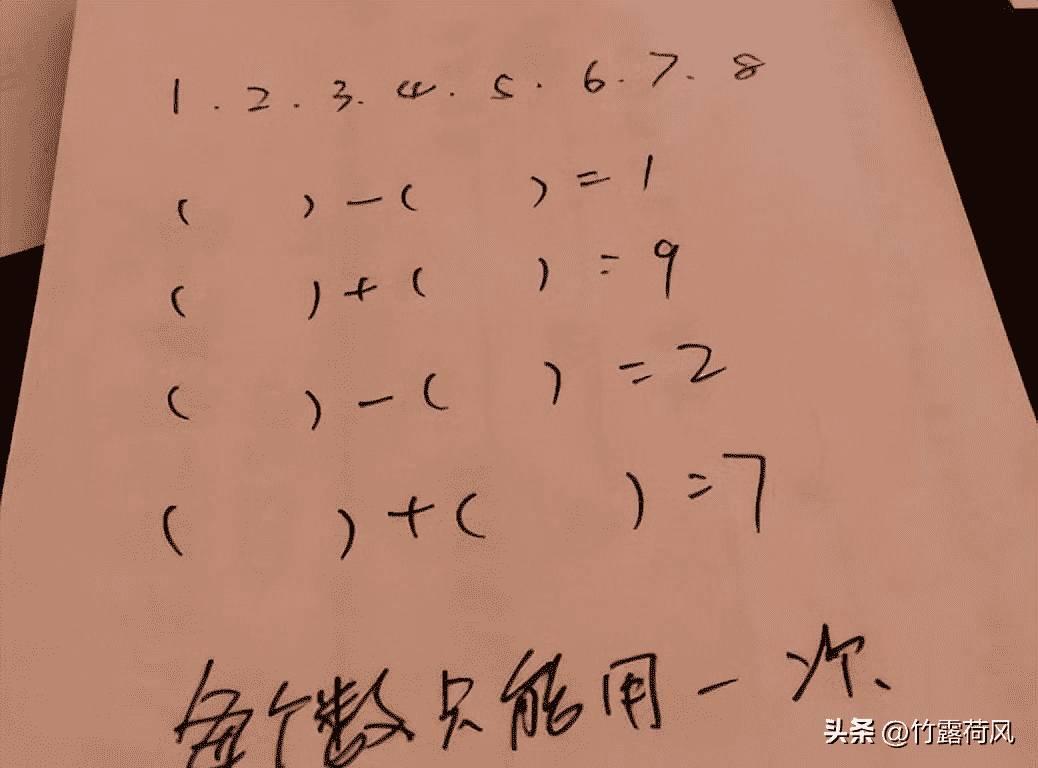 1.2.3.4.5.6.7.8
( )-( )=1
( )+( )=9
( )-( )=2
( )+( )=7
每个数只能用一次、
头条 @竹露荷风